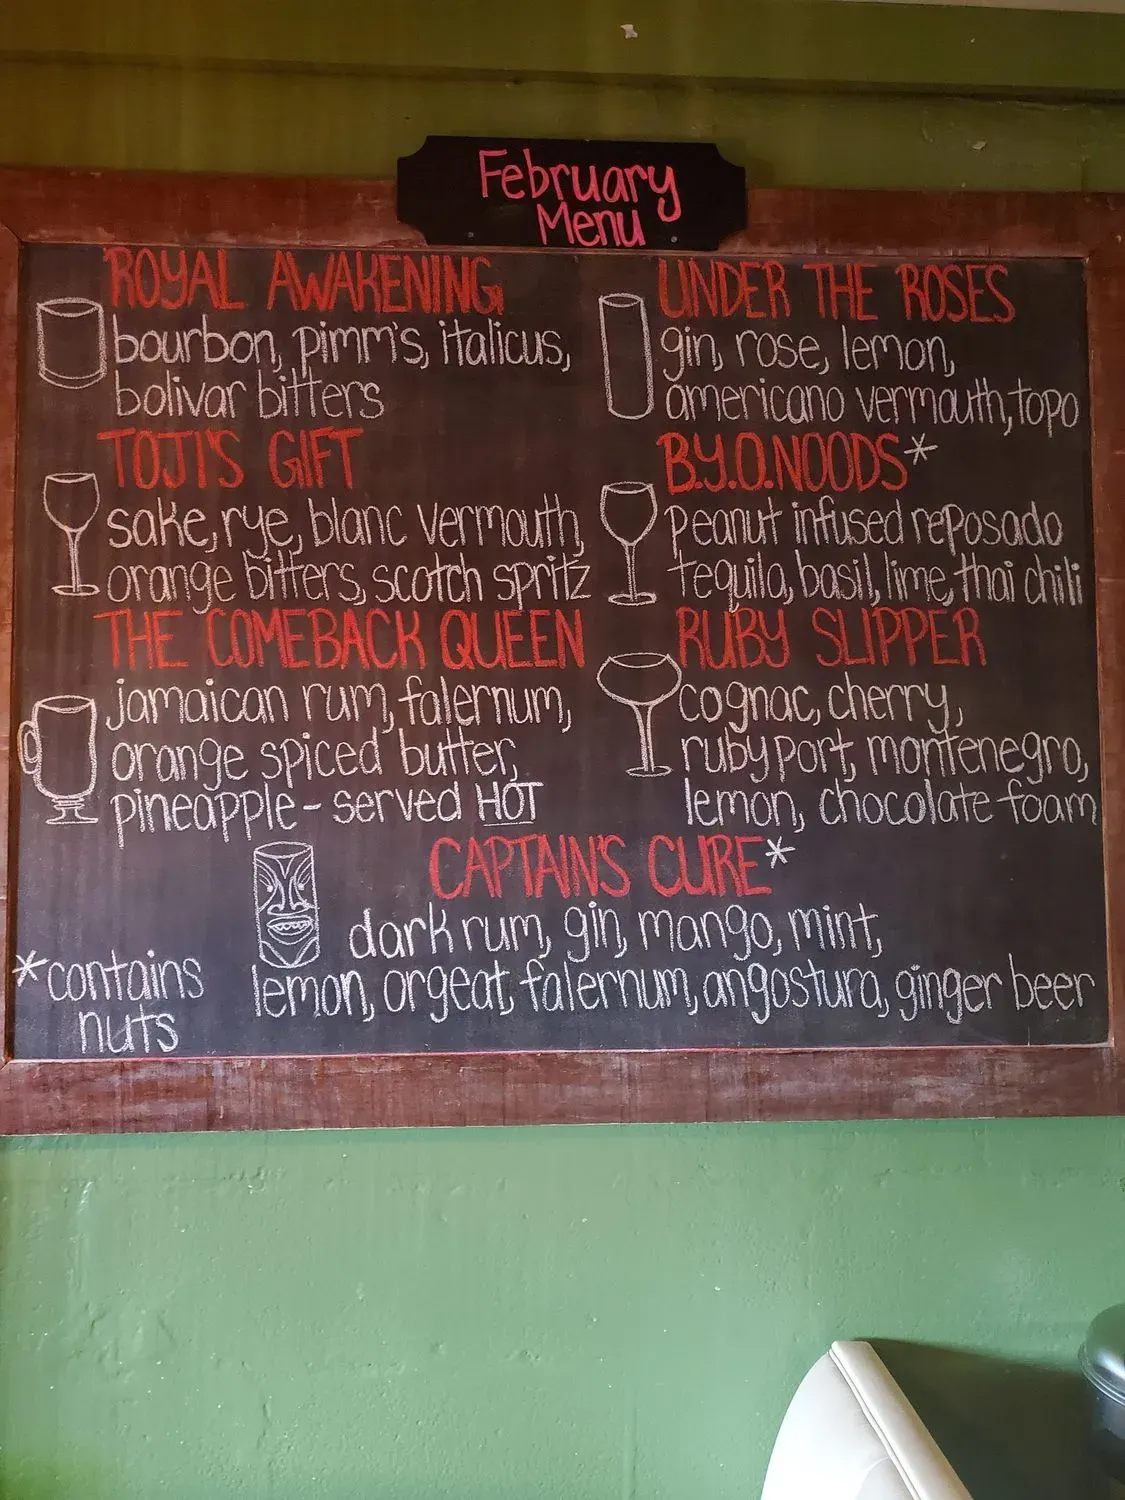 February
Menu
ROYAL AWAKENING
bourbon, pimm's, italicus,
bolivar bitters
TOJI'S GIFT
sake, rye, blanc vermouth,
orange bitters, scotch spritz
THE COMEBACK QUEEN
jamaican rum, falernum,
orange spiced butter,
pineapple - served HOT
UNDER THE ROSES
gin, rose, lemon,
americano vermouth, topo
B.Y.O.NOODS*
peanut infused reposado
tequila, basil, lime, thai chili
RUBY SLIPPER
cognac, cherry,
ruby port, montenegro,
lemon, chocolate foam
CAPTAIN'S CURE*
dark rum, gin, mango, mint,
lemon, orgeat, falernum, angostura, ginger beer
*contains
nuts